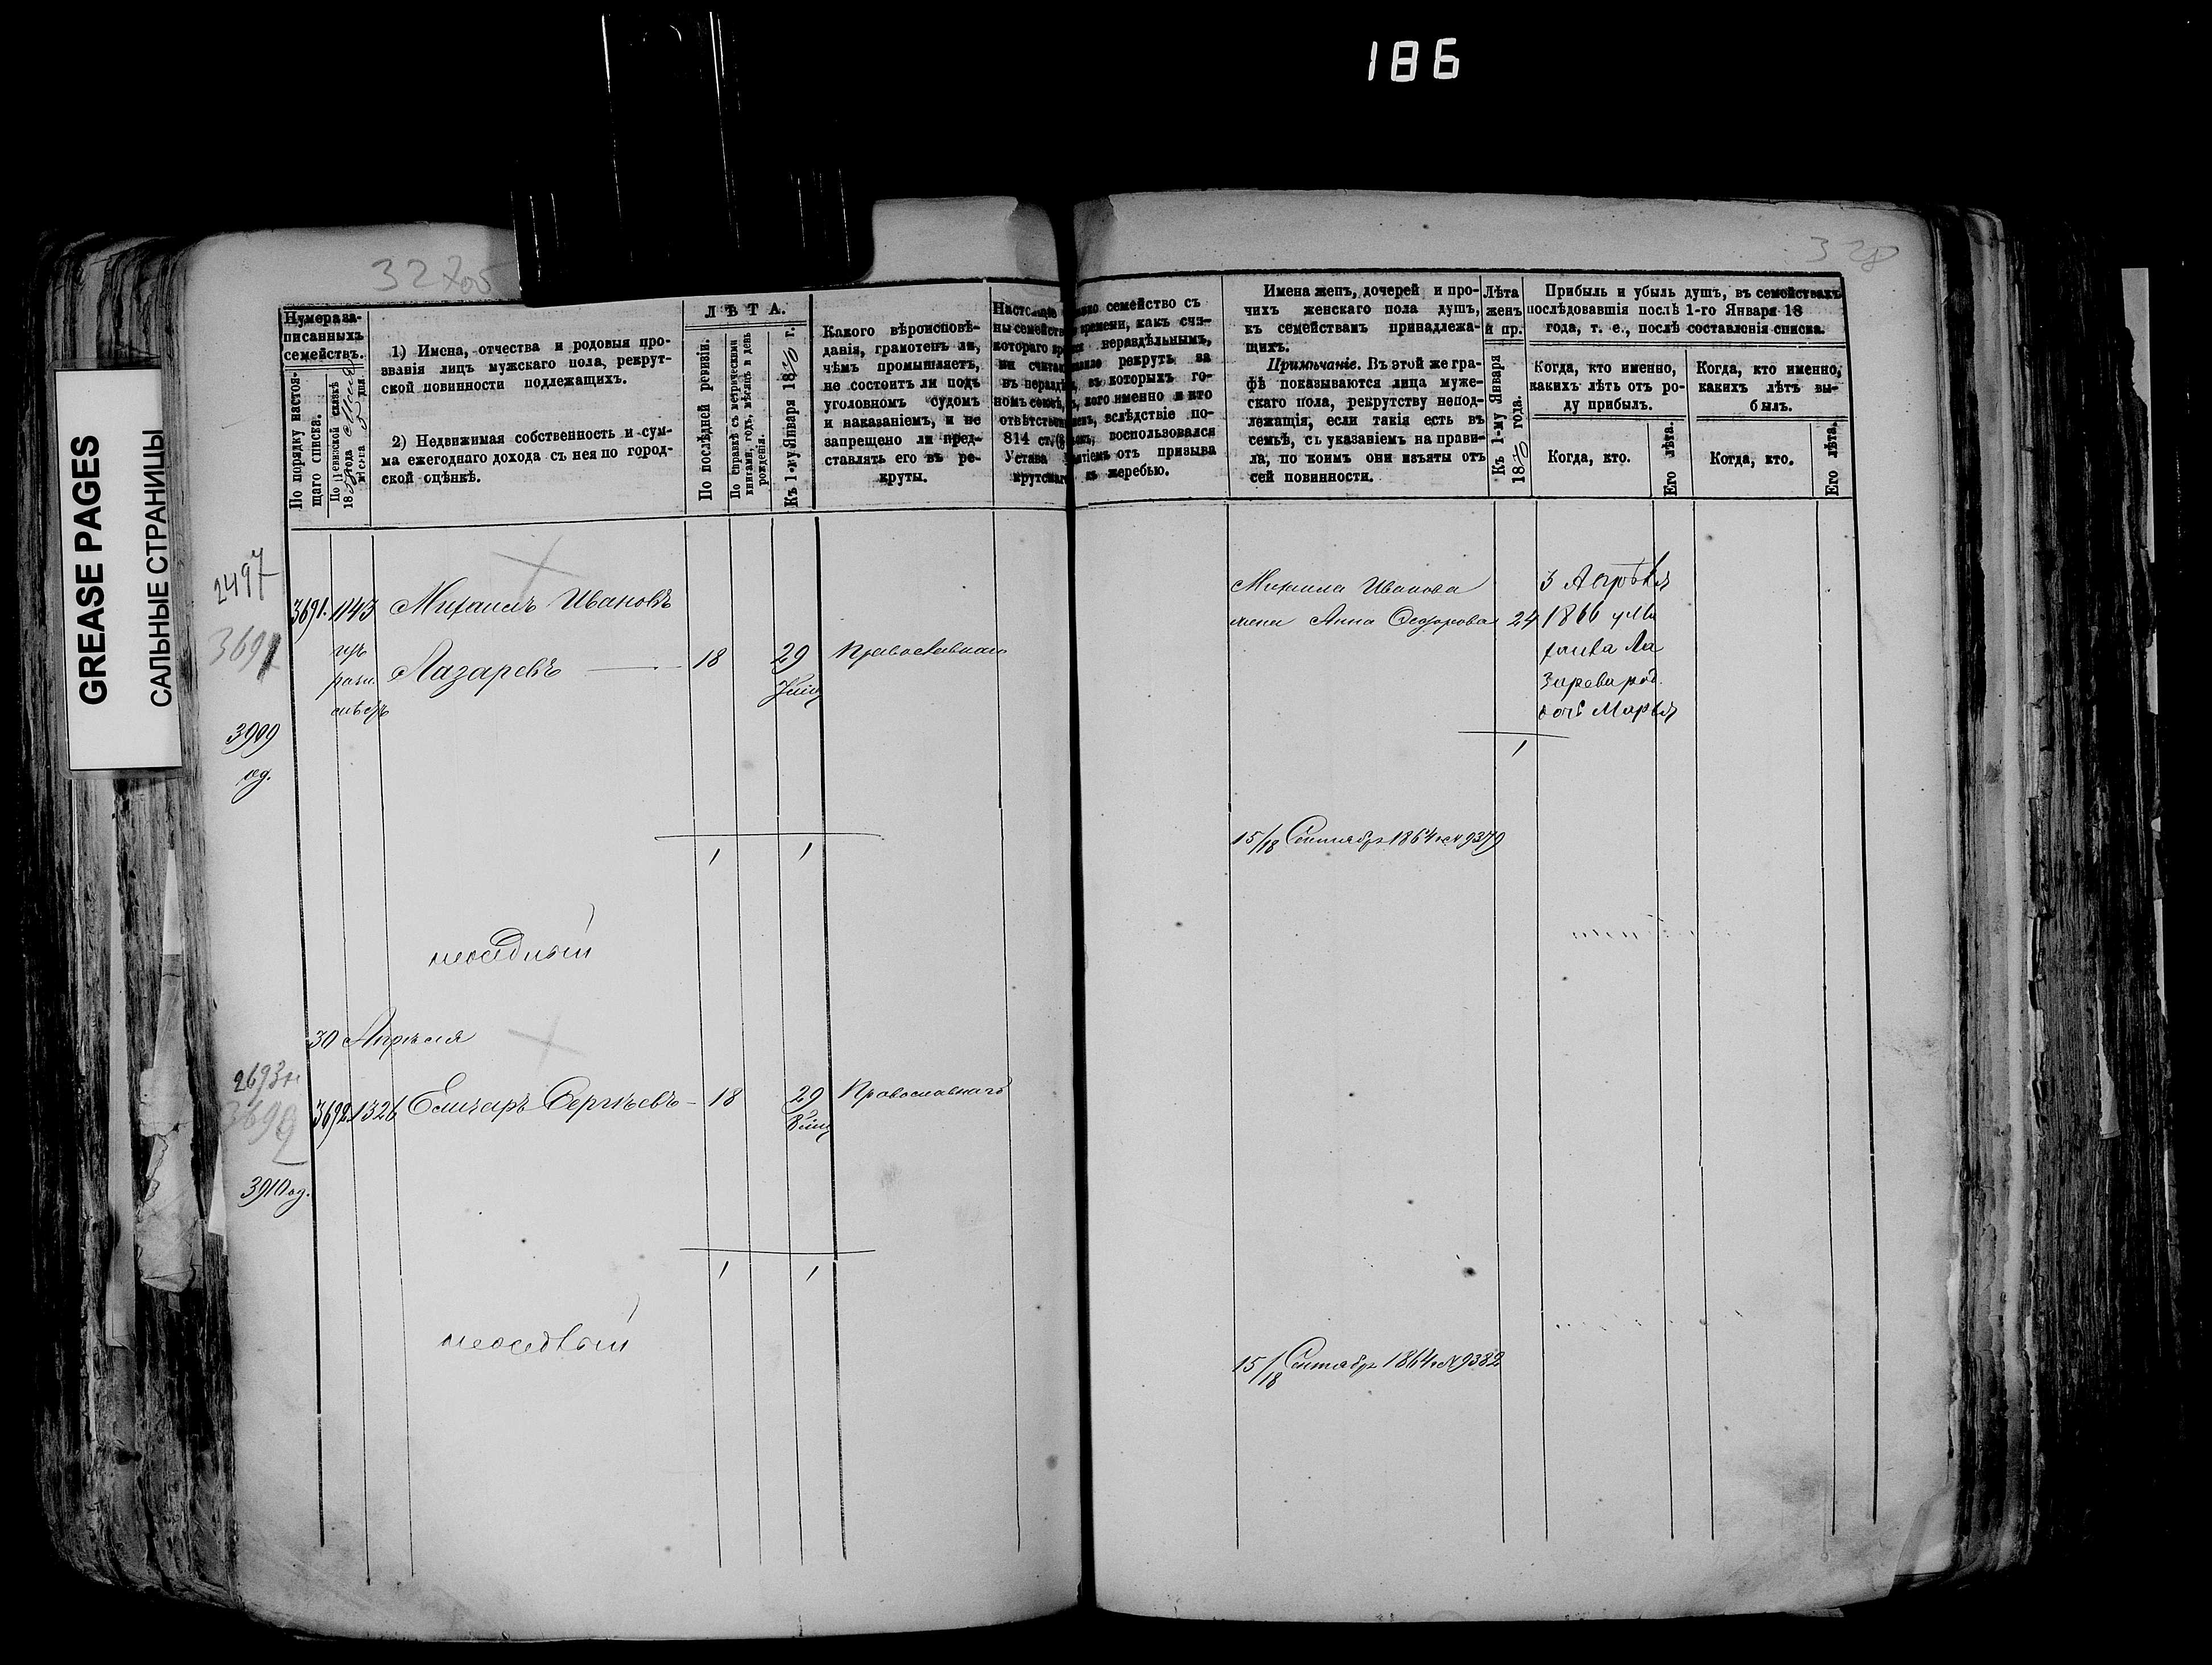 186
GREASE PAGES
САЛЬНЫЕ СТРАНИЦЫ
328
Нумера за-
писанныхъ
семействъ.
По порядку настоя-
щаго списка.
По ревизской сказкѣ
1) Имена, отчества и родовыя про-
званія лицъ мужскаго пола, рекрут-
ской повинности подлежащихъ.
2) Недвижимая собственность и сум-
ма ежегоднаго дохода съ нея по город-
ской оцѣнкѣ.
ЛѢТА.
По послѣдней ревизіи.
По справкѣ съ метрическими
книгами, годъ, мѣсяцъ и день
рожденія.
Къ 1-му Января 1870 г.
Какого вѣроисповѣ-
данія, грамотенъ ли,
чѣмъ промышляетъ,
не состоитъ ли подъ
уголовномъ судомъ
и наказаніемъ, и не
запрещено ли пред-
ставлять его въ ре-
круты.
семейство съ
времени, какъ счи-
нераздѣльнымъ,
рекрутъ за
въ которыхъ го-
кого именно и кто
вслѣдствіе по-
воспользовался
отъ призыва
къ жеребью.
Имена женъ, дочерей и про-
чихъ женскаго пола душъ,
къ семействамъ принадлежа-
щихъ.
Примѣчаніе. Въ этой же гра-
фѣ показываются лица муже-
скаго пола, рекрутству непод-
лежащія, если такія есть въ
семьѣ, съ указаніемъ на прави-
ла, по коимъ они изъяты отъ
сей повинности.
Лѣта
женъ
и пр.
Къ 1-му Января
1870 года.
Прибыль и убыль душъ, въ семействахъ
послѣдовавшія послѣ 1-го Января 18
года, т. е., послѣ составленія списка.
Когда, кто именно,
какихъ лѣтъ отъ ро-
ду прибылъ.
Когда, кто именно,
какихъ лѣтъ вы-
былъ.
Когда, кто.
Его лѣта.
Когда, кто.
Его лѣта.
2497
3691
3909
од.
3691. 1143 Михаилъ Ивановъ
Лазаревъ 18 29 Православнаго
1 1
Михаила Иванова
жена Анна Федорова 24
1
3 Апрѣля
1866 у Ми
хаила Ла
зарева род.
дочь Марья
15/18 Сентября 1864 № 9379
неоседлый
30 Апреля
2693
3692
3910 од.
3692 1326 Елизаръ Сергѣевъ 18 29 Православнаго
1 1
неоседлый
15/18 Сентября 1864 № 9382